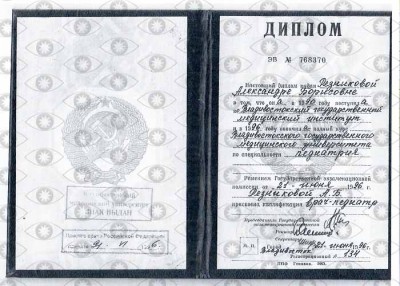 ДИПЛОМ
ЭВ № 768370
Настоящий диплом выдан Резниковой
Александре Борисовне
в том, что она в 1990 году поступила
в Владивостокский государственный
медицинский институт
и в 1996 году окончила полный курс
Владивостокского государственного
медицинского университета
по специальности педиатрия
Решением Государственной экзаменационной
комиссии от 21 июня 1996 г.
Резниковой А.Б.
присвоена квалификация врач-педиатр
Председатель Государственной
экзаменационной комиссии
Ректор
Секретарь
М. П. Город Владивосток 21 июня 1996 г.
Регистрационный № 134
ДИПЛОМ ВЫДАН